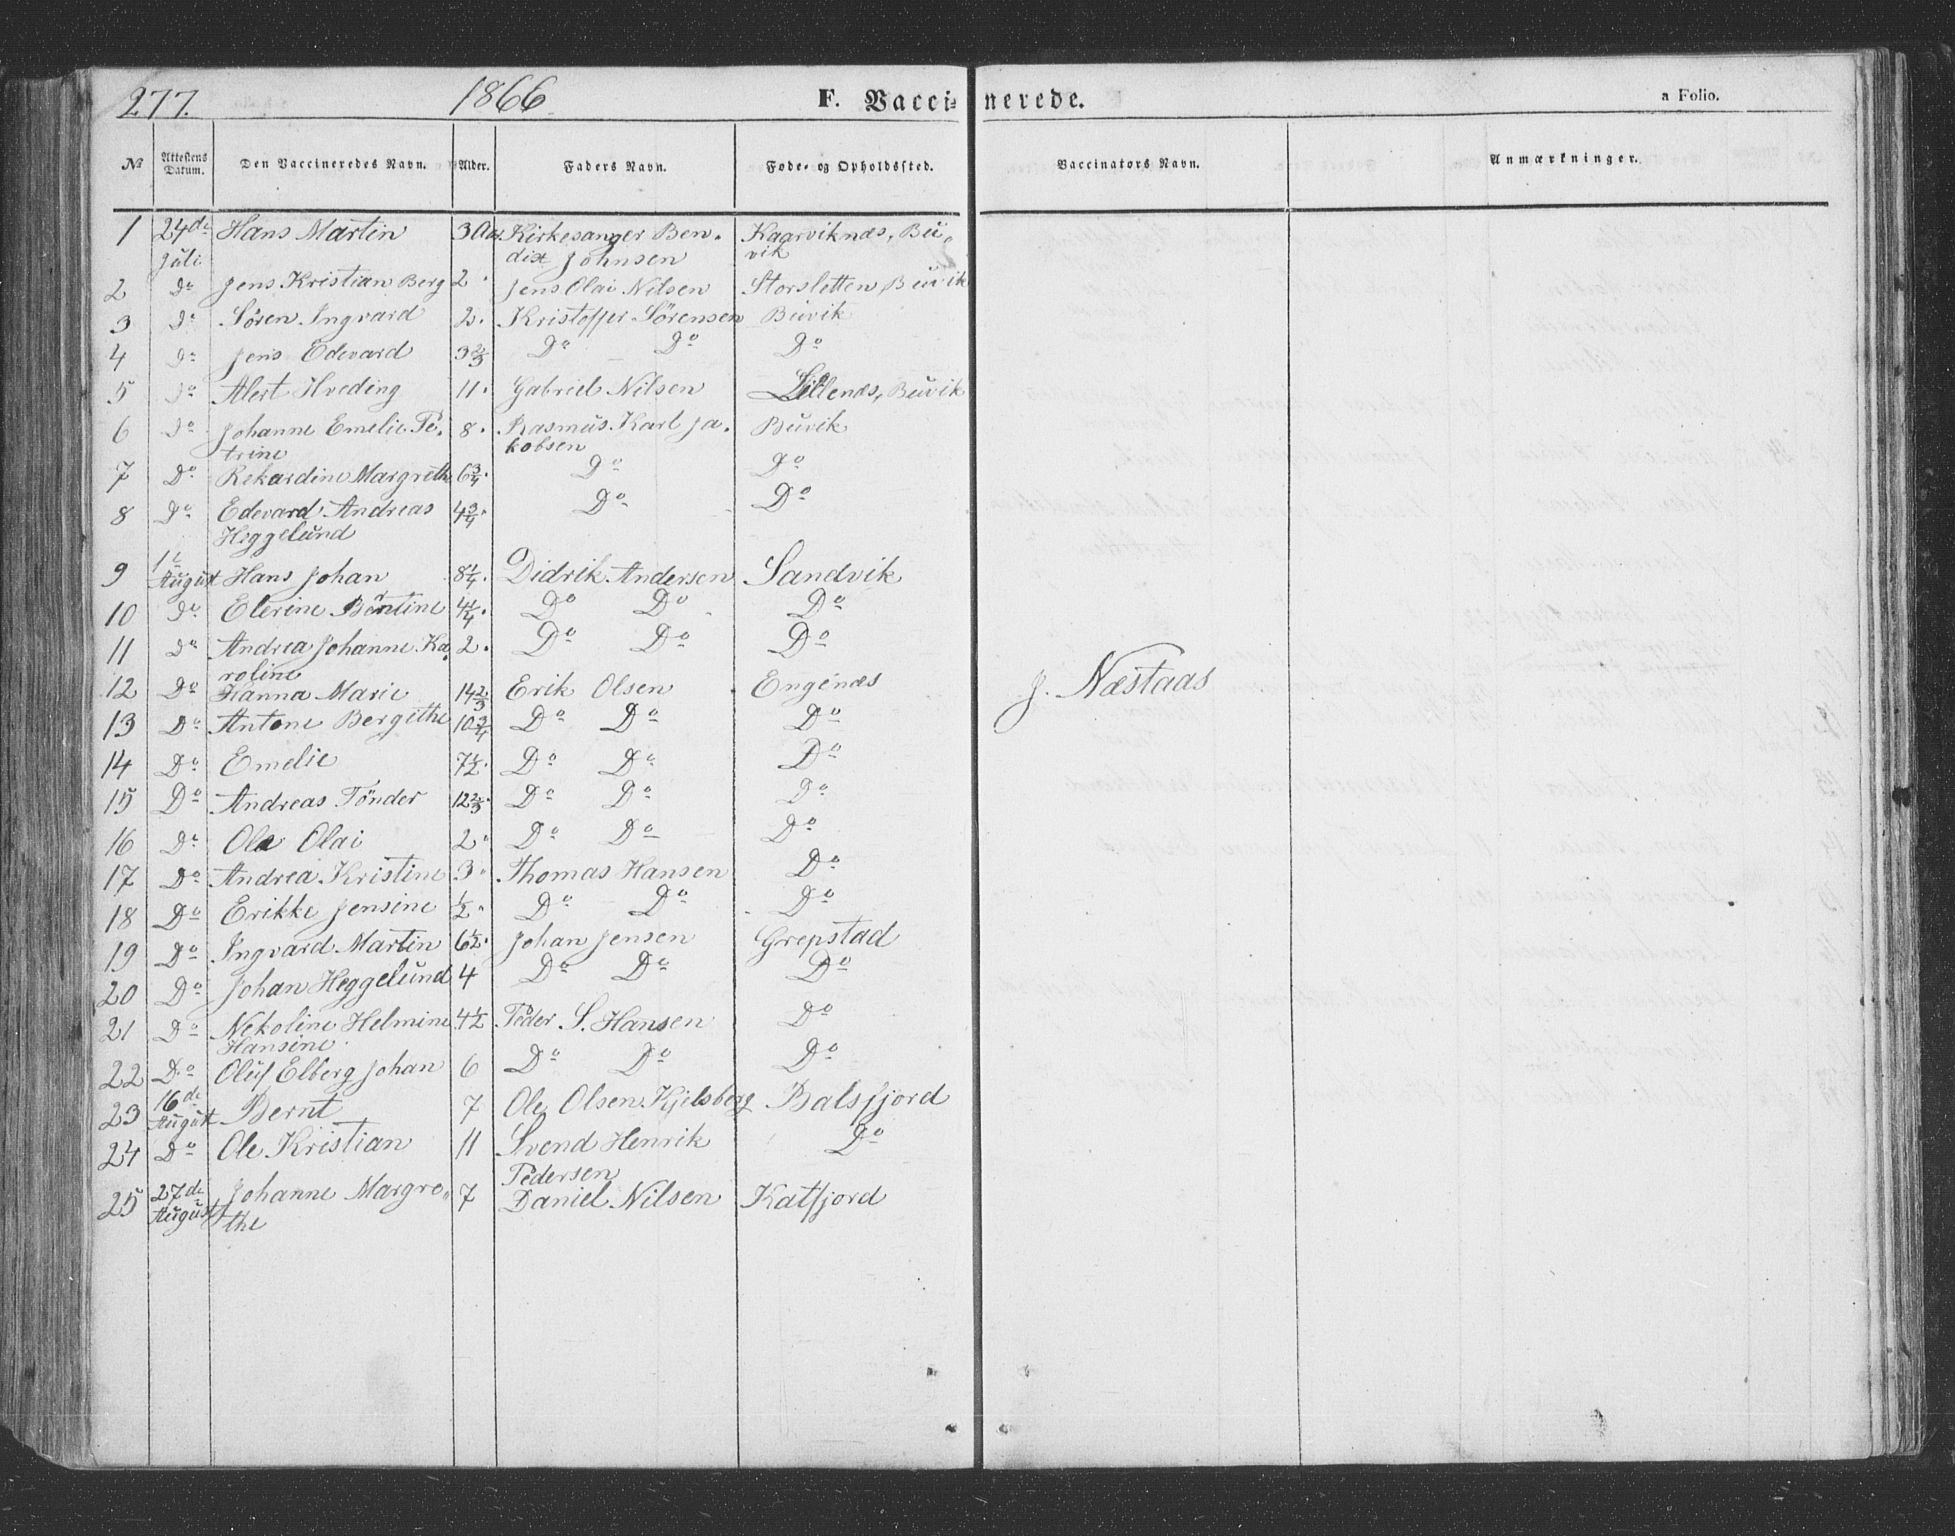 277. 1866 F. Vaccinerede. a Folio.
№ Attestens Datum. Den Vaccineredes Navn. Alder. Faders Navn. Føde- og Opholdssted. Vaccinators Navn. Anmærkninger.
1 24de Hans Martin 3 Aar Kirkesanger Ben- Kaarviknæs, Bu-
Juli dix Johnsen vik
2 Do Jens Kristian Berg 2 Jens Olai Nilsen Storsletten, Buvik
3 Do Sören Ingvard 2. Kristoffer Sörensen Buvik
4 Do Jens Edevard 3 2/3 Do Do Do
5 Do Alert Hveding 11. Gabriel Nilsen Lillenæs, Buvik
6 Do Johanne Emelie Pe- 8. Rasmus Karl Ja- Buvik
trine kobsen
7 Do Rikardine Margrethe 6 3/4. Do Do
8 Do Edevard Andreas 4 3/4. Do Do
Heggelund
9 1te August Hans Johan 8 1/4. Didrik Andersen Sandvik
10 Do Elerine Bentine 4 1/4. Do Do Do
11 Do Andrea Johanne Ka- 2. Do Do Do
roline
12 Do Hanna Marie 14 2/3 Erik Olsen Engenæs J. Næstaas
13 Do Antone Bergithe 10 3/4 Do Do Do
14 Do Emelie 7 1/2. Do Do Do
15 Do Andreas Tönder 12 2/3. Do Do Do
16 Do Ole Olai 2. Do Do Do
17 Do Andrea Kristine 3. Thomas Hansen Do
18 Do Erikke Jensine 1/2. Do Do Do
19 Do Ingvard Martin 6 1/2. Johan Jensen Grepstad
20 Do Johan Heggelund 4 Do Do Do
21 Do Nekoline Helmine 4 1/2 Peder S. Hansen Do
Hansine
22 Do Oluf Elberg Johan 6 Do Do Do
23 16de August Bernt 7 Ole Olsen Kjelsberg Balsfjord
24 Do Ole Kristian 11 Svend Henrik Do
Pedersen
25 27de August Johanne Margre- 7 Daniel Nilsen Katfjord
the